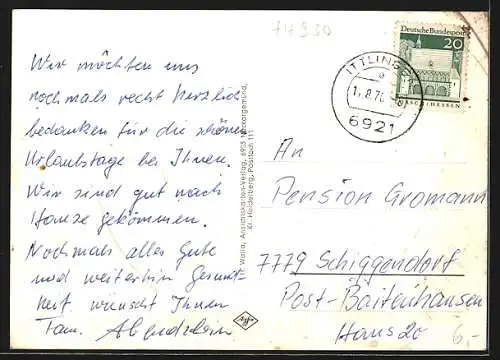 74930
Wir möchten uns
nochmals recht herzlich
bedanken für die schönen
Urlaubstage bei Ihnen.
Wir sind gut nach
Hause gekommen.
Nochmals alles Gute
und weiterhin Gesund-
heit wünscht Ihnen
Fam.
Walla, Ansichtskarten-Verlag, 6903 Neckargemünd,
Kr. Heidelberg, Postfach 111
Agfa
Deutsche Bundespost
20
LORSCH/HESSEN
ITTLINGEN
a
6921
An
Pension Gromann
7779 Schiggendorf
Post-Baitenhausen
Haus 20
6,-